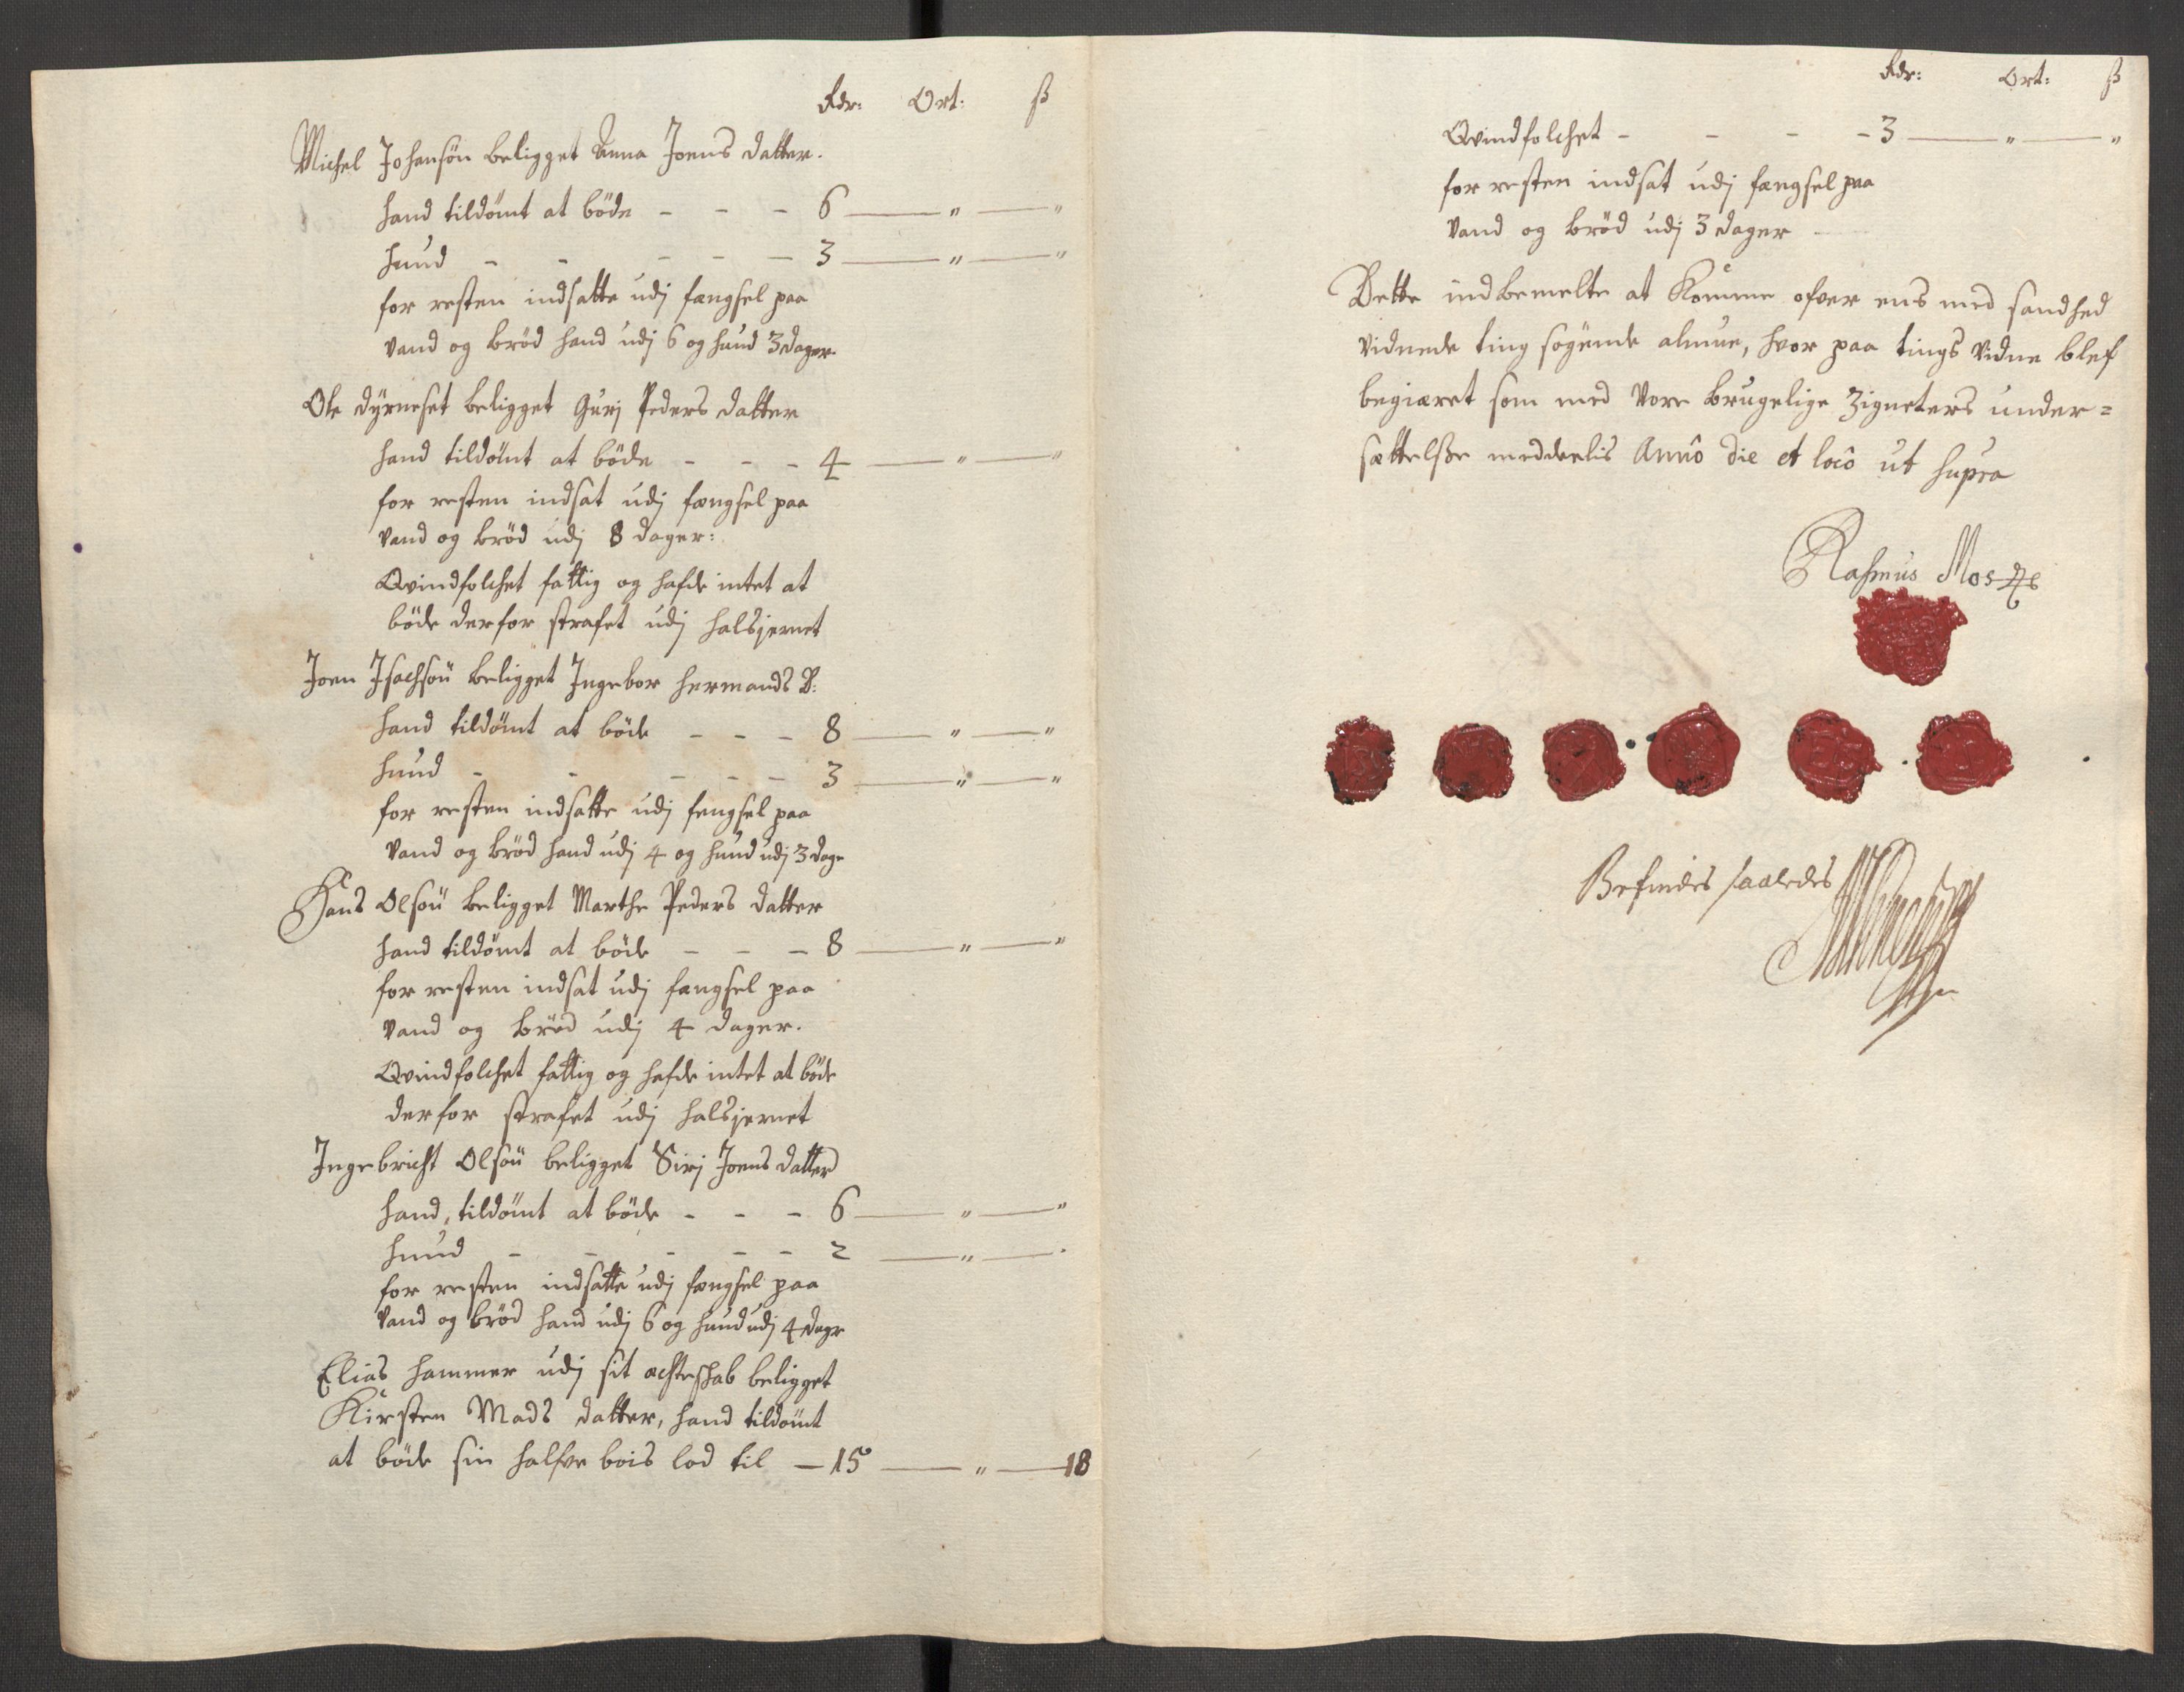 Rdr: Ort: ß
Michel Johansön beligget Anna Joens datter.
hand tildömt at böde - - - 6 — " — "
hund - - - - - 3 — " — "
for resten indsatte udj fængsel paa
vand og bröd hand udj 6 og hund 3 dager
Ole dyrneset beligget Gurj Peders datter
hand tildömt at böde - - - 4 — " — "
for resten indsat udj fængsel paa
vand og bröd udj 8 dager:
Qvindfolchet fattig og hafde intet at
böde derfor strafet udj halsjernet
Joen Isachsön beligget Ingebor Hermands D:
hand tildömt at böde - - - 8 — " — "
hund - - - - - 3 — " — "
for resten indsatte udj fengsel paa
vand og bröd hand udj 4 og hund udj 3 dage
Hans Olsön beligget Marthe Peders datter
hand tildömt at böde - - - 8 — " — "
for resten indsat udj fængsel paa
vand og bröd udj 4 dager.
Qvindfolchet fattig og hafde intet at böde
derfor strafet udj halsjernet
Ingebricht Olsön beligget Sirj Joens datter
hand tildömt at böde - - - 6 — " — "
hund - - - - - 2 — " — "
for resten indsatte udj fængsel paa
vand og bröd hand udj 6 og hund udj 4 dage
Elias Hammer udj sit ächteschab beligget
Kirsten Mads datter, hand tildömt
at böde sin halfve bois lod til — 15 — " — 18
Rdr: Ort: ß
Qvindfolchet - - - - 3 — " — "
for resten indsat udj fængsel paa
vand og bröd udj 3 dager
Dette indbemelte at komme ofver ens med sandhed
vidnede ting sögende almue, hvor paa tings vidne blef
begiæret som med vore brugelige Zigneters under=
sættelße meddeelis Annô die et locô ut supra
Rasmus Mos
Befindes saaledes